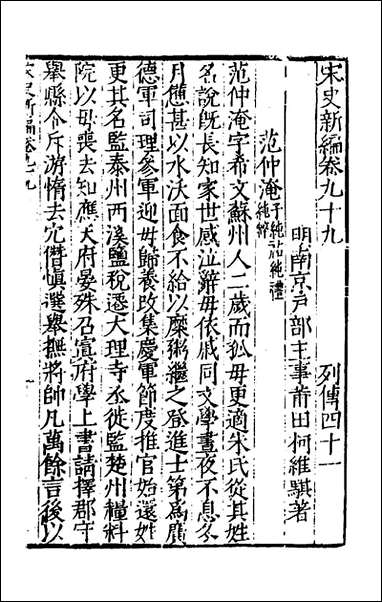 宋史新編卷九十九 列傳四十一
明南京戶部主事莆田柯維騏著
范仲淹 子純祐純禮
純粹
范仲淹字希文蘇州人二歲而孤毋更適朱氏從其姓
名說既長知家世感泣辭毋依戚同文學晝夜不息冬
月憊甚以水沃面食不給以糜粥繼之登進士第為廣
德軍司理參軍迎毋歸養改集慶軍節度推官始還姓
更其名監泰州西溪鹽稅遷大理寺丞徙監楚州糧料
院以毋喪去知應天府晏殊召寘府學上書請擇郡守
舉縣令斥游惰去冗僭慎選舉撫將帥凡萬餘言後以
宋史新編卷九十九 一